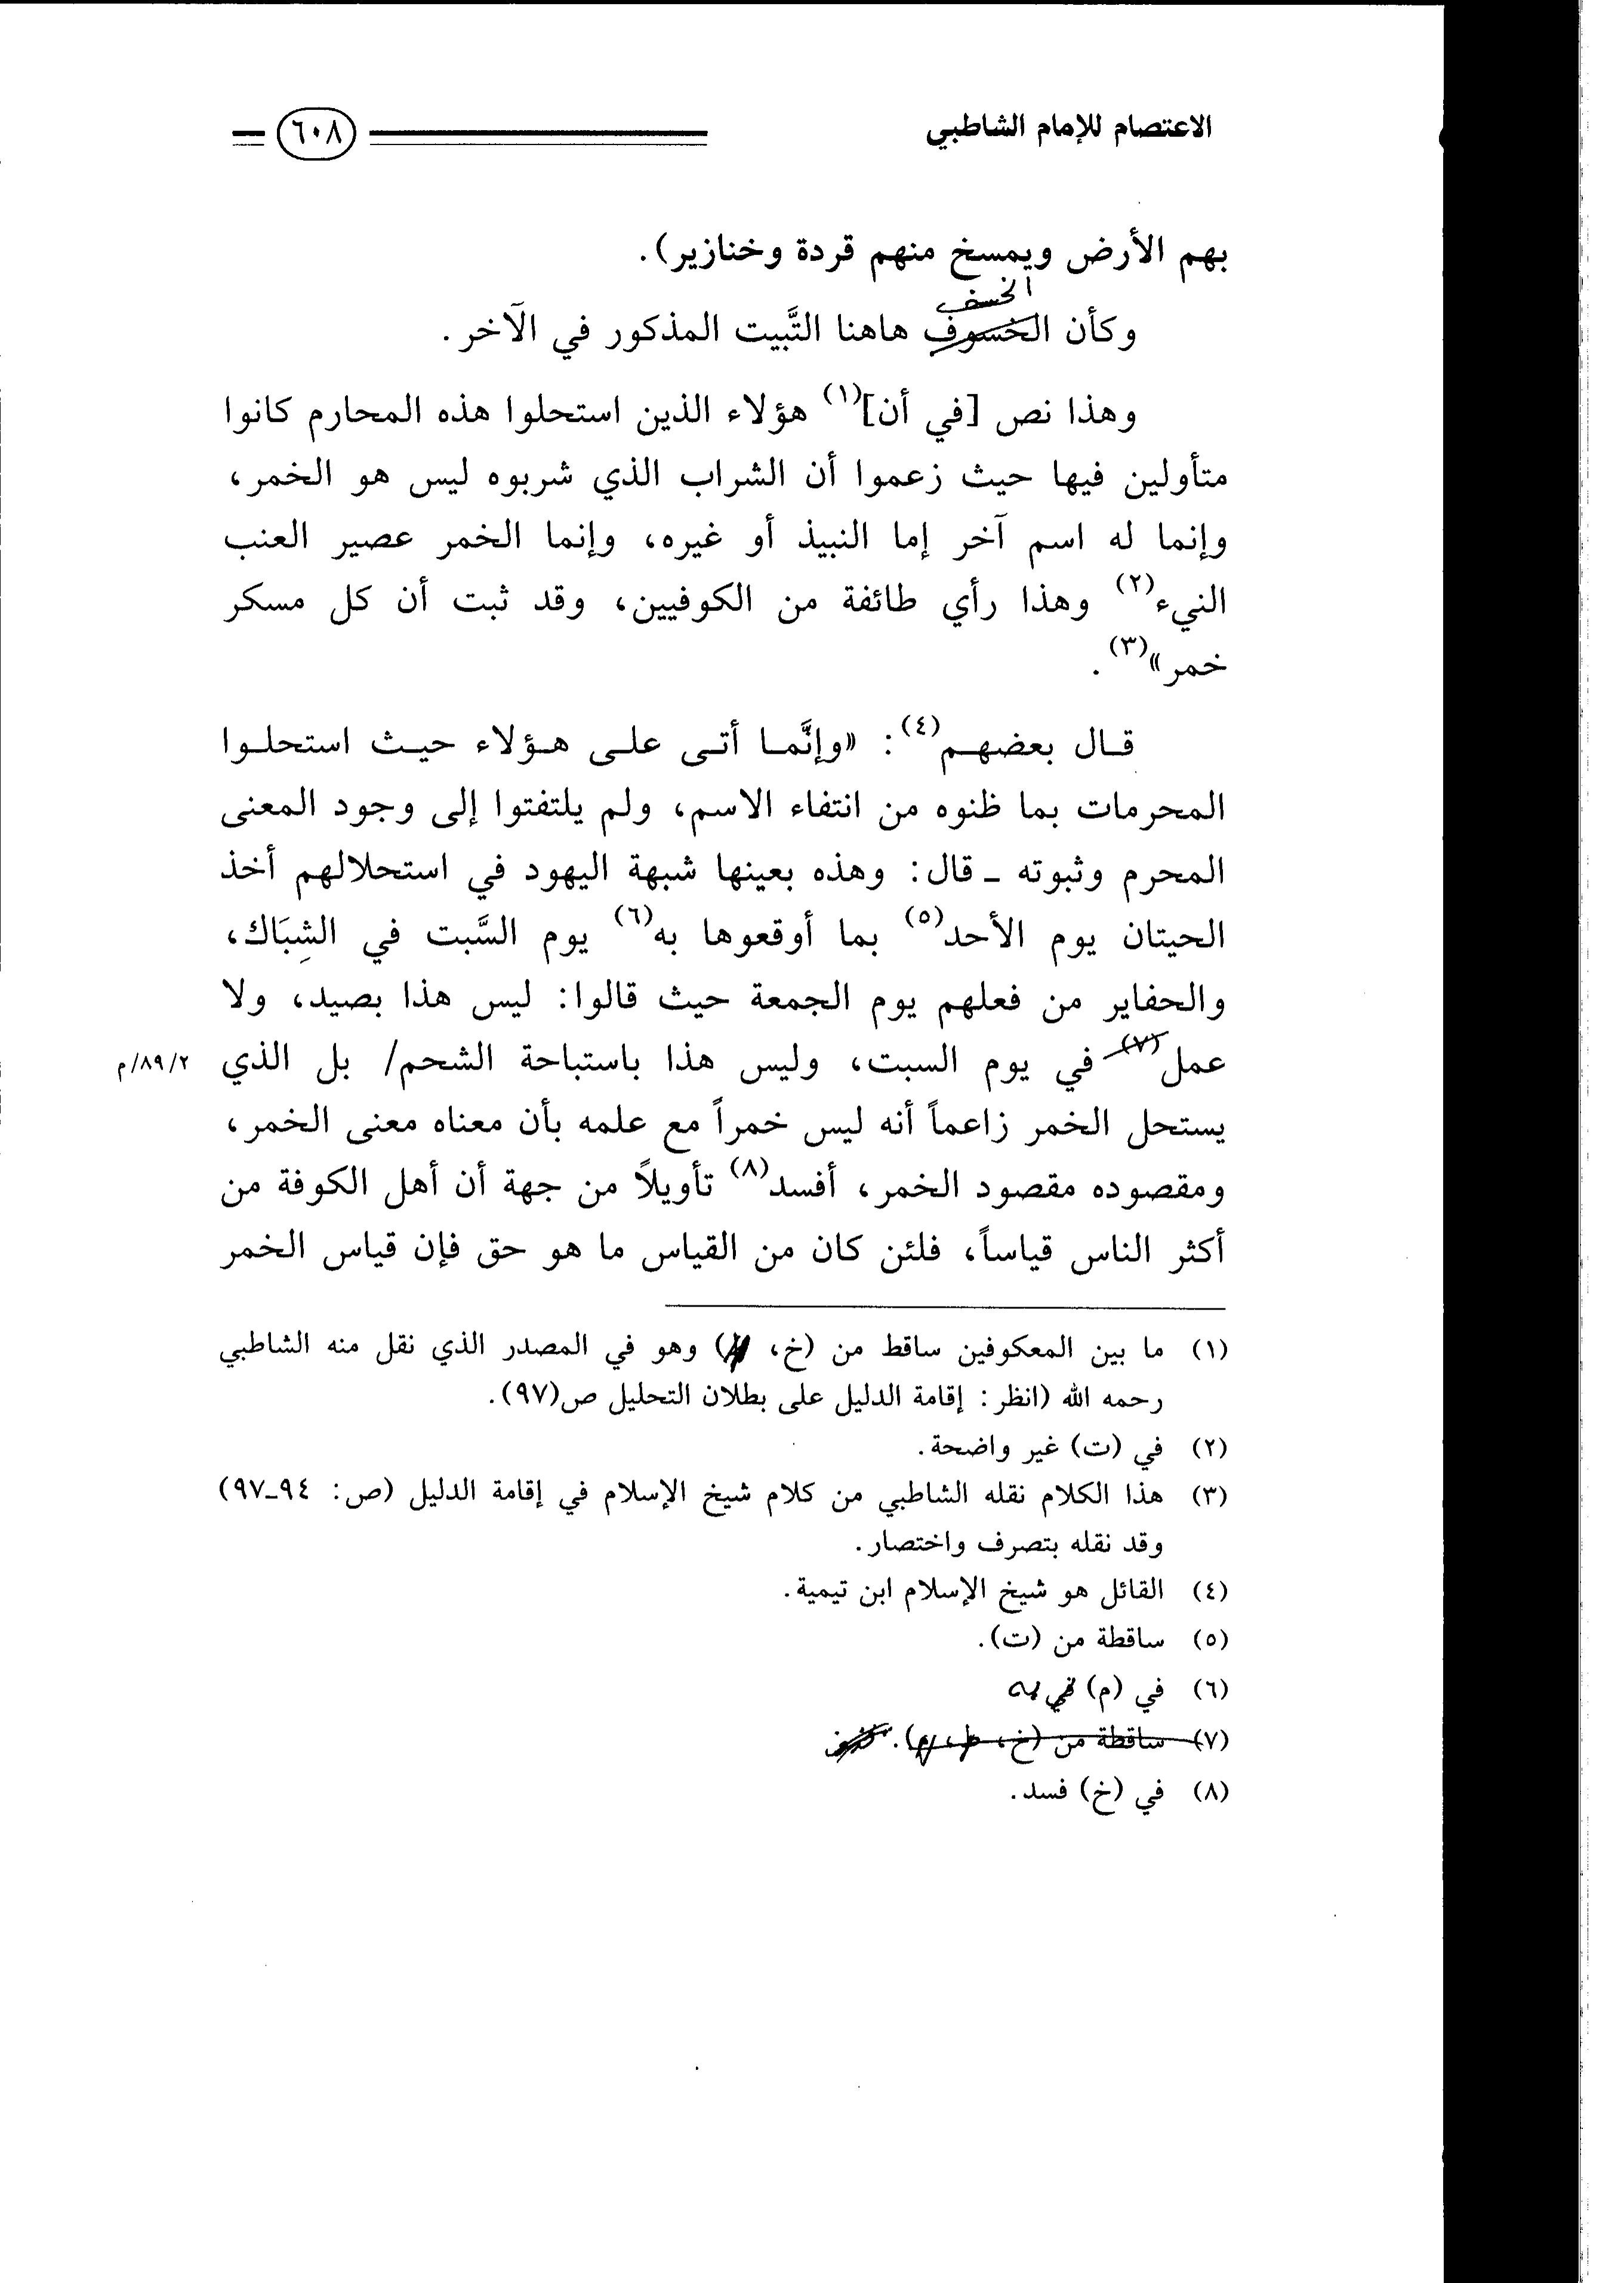 الاعتصام للإمام الشاطبي
٦٠٨
بهم الأرض ويمسخ منهم قردة وخنازير).
الخسف
وكأن الخسوف هاهنا التَّبيت المذكور في الآخر.
وهذا نص [في أن](١) هؤلاء الذين استحلوا هذه المحارم كانوا
متأولين فيها حيث زعموا أن الشراب الذي شربوه ليس هو الخمر،
وإنما له اسم آخر إما النبيذ أو غيره، وإنما الخمر عصير العنب
النيء(٢) وهذا رأي طائفة من الكوفيين، وقد ثبت أن كل مسكر
خمر»(٣).
قـال بعضهـم(٤): «وإنَّمـا أتـى علـى هـؤلاء حيـث استحلـوا
المحرمات بما ظنوه من انتفاء الاسم، ولم يلتفتوا إلى وجود المعنى
المحرم وثبوته ـ قال: وهذه بعينها شبهة اليهود في استحلالهم أخذ
الحيتان يوم الأحد(٥) بما أوقعوها به(٦) يوم السَّبت في الشِبَاك،
والحفاير من فعلهم يوم الجمعة حيث قالوا: ليس هذا بصيد، ولا
عمل(٧) في يوم السبت، وليس هذا باستباحة الشحم/ بل الذي
٨٩/٢/م
يستحل الخمر زاعماً أنه ليس خمراً مع علمه بأن معناه معنى الخمر،
ومقصوده مقصود الخمر، أفسد(٨) تأويلاً من جهة أن أهل الكوفة من
أكثر الناس قياساً، فلئن كان من القياس ما هو حق فإن قياس الخمر
(١) ما بين المعكوفين ساقط من (خ، ) وهو في المصدر الذي نقل منه الشاطبي
رحمه الله (انظر: إقامة الدليل على بطلان التحليل ص(٩٧).
(٢) في (ت) غير واضحة.
(٣) هذا الكلام نقله الشاطبي من كلام شيخ الإسلام في إقامة الدليل (ص: ٩٤ـ٩٧)
وقد نقله بتصرف واختصار.
(٤) القائل هو شيخ الإسلام ابن تيمية.
(٥) ساقطة من (ت).
(٦) في (م) به
(٧) ساقطة من (خ، ط، م).
(٨) في (خ) فسد.